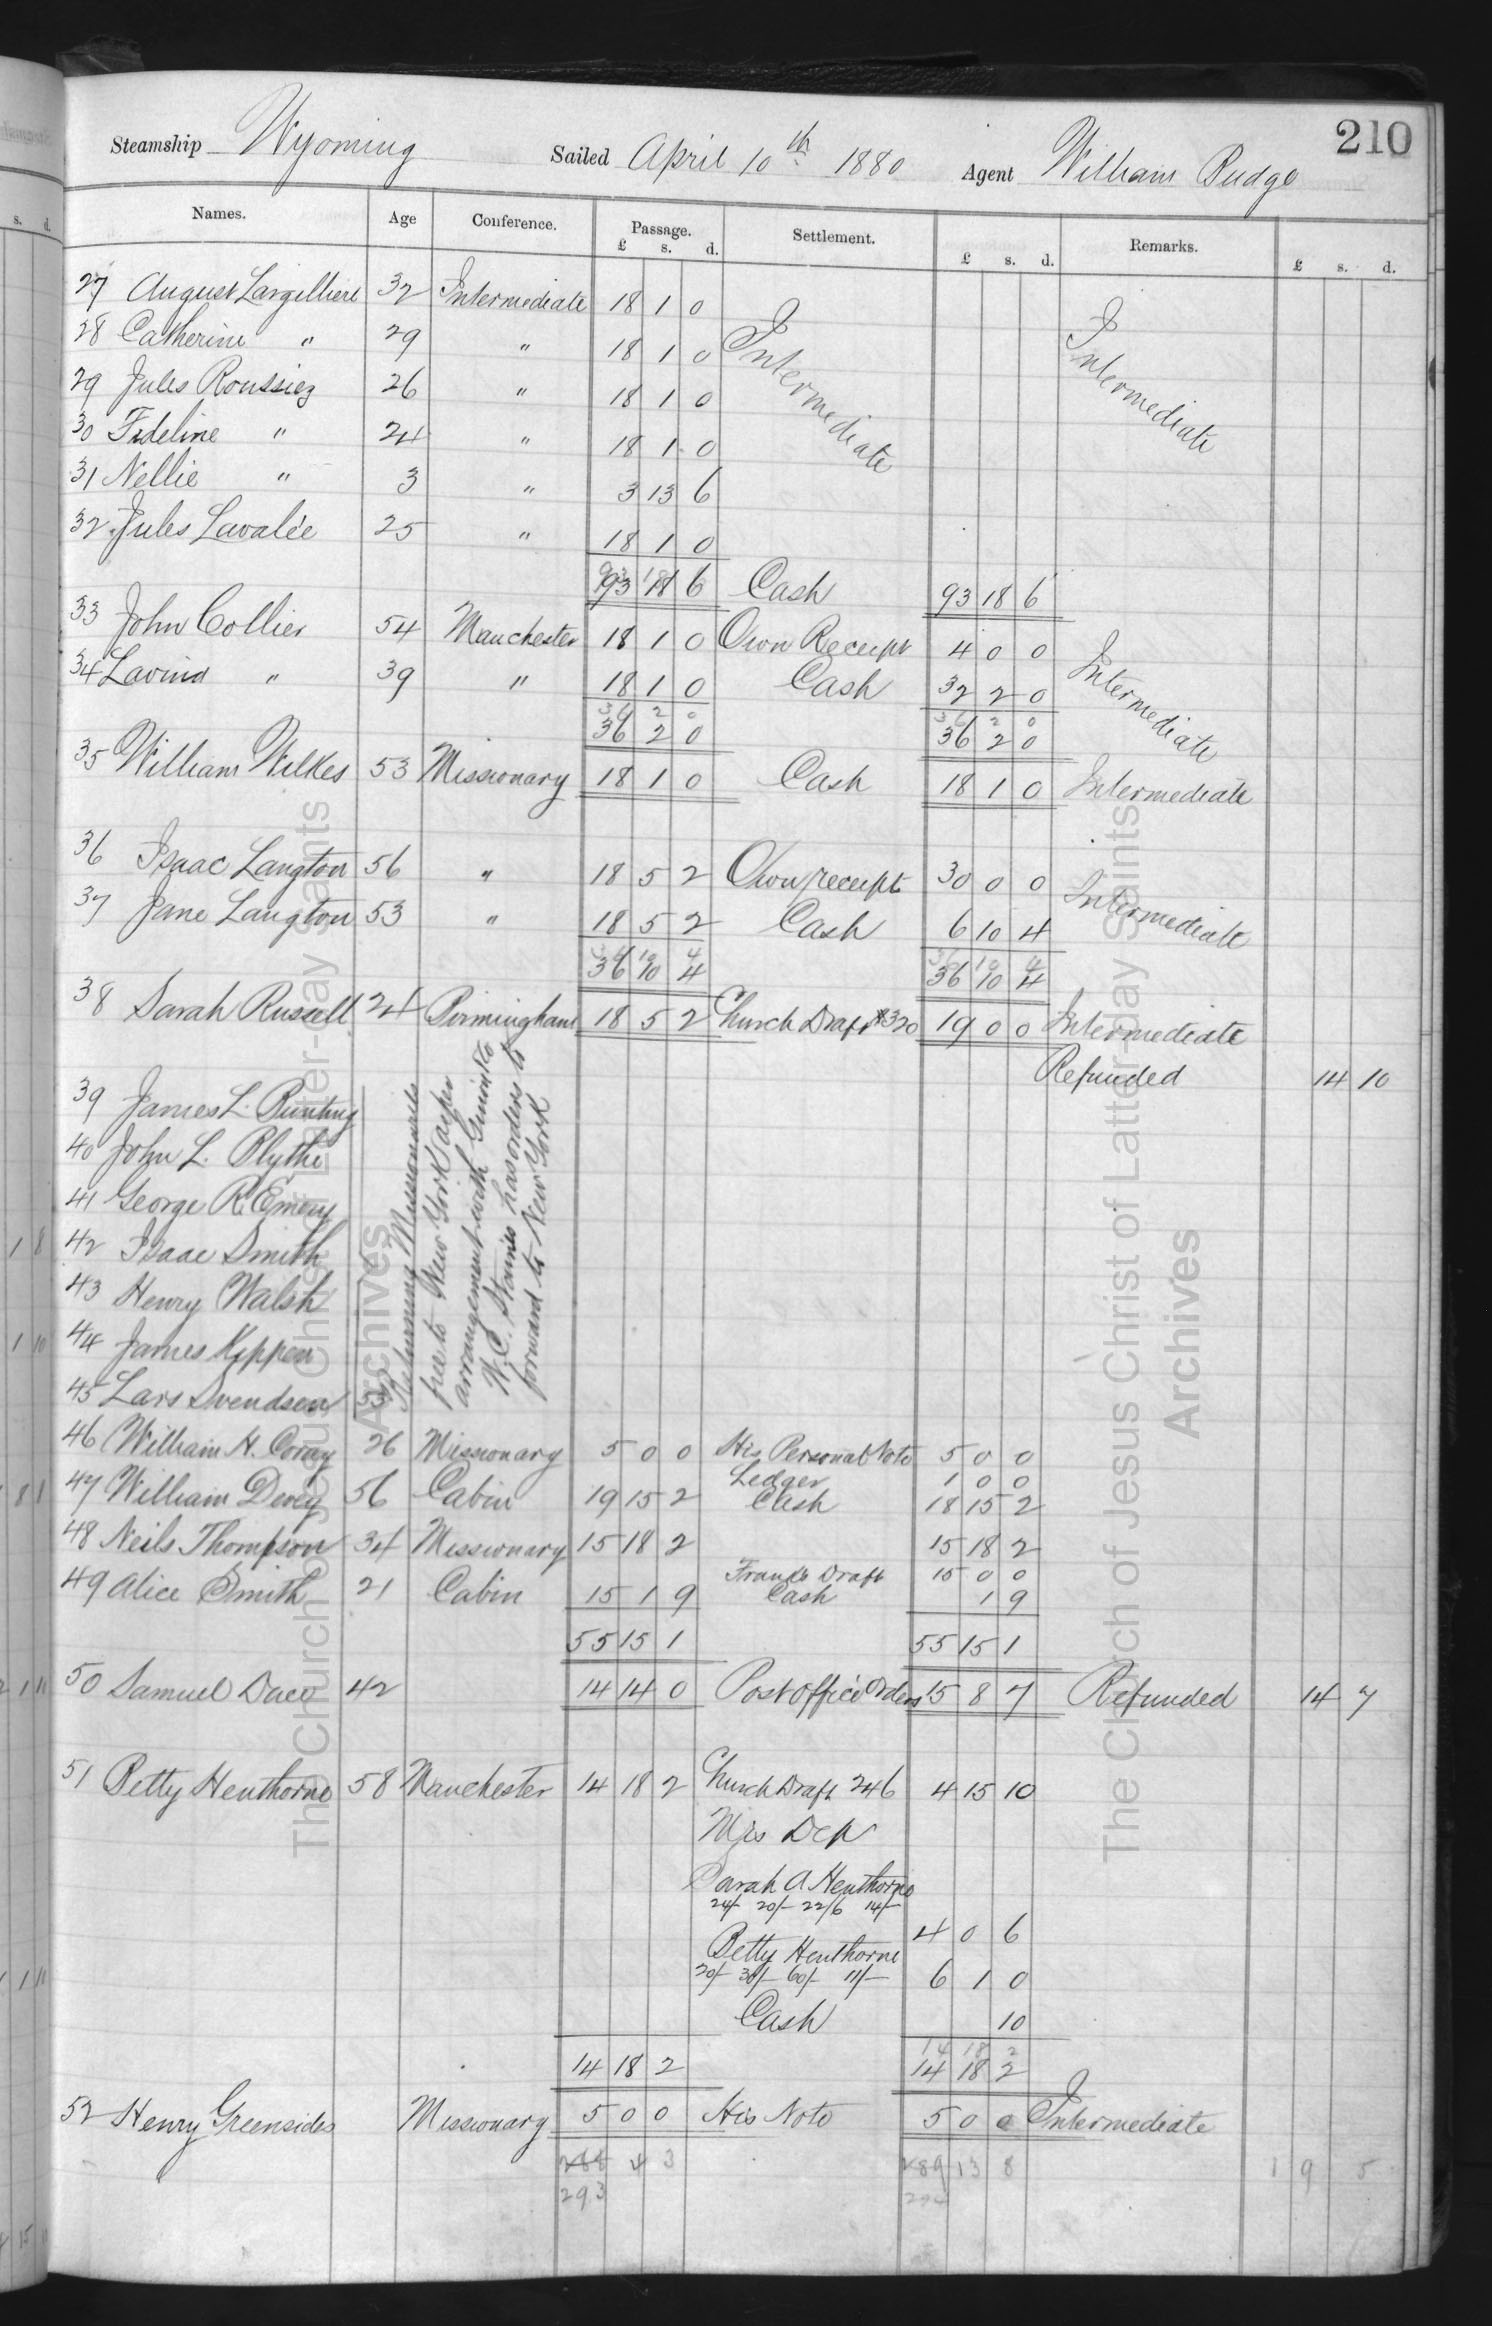 210
Steamship Wyoming Sailed April 10th 1880 Agent William Budge
Names. Age Conference. Passage. £ s. d. Settlement. £ s. d. Remarks. £ s. d.
27 August Largilliere 32 Intermediate 18 1 0 Intermediate Intermediate
28 Catherine " 29 " 18 1 0
29 Jules Roussiez 26 " 18 1 0
30 Fideline " 24 " 18 1 0
31 Nellie " 3 " 3 13 6
32 Jules Lavalée 25 " 18 1 0
93 18 6 Cash 93 18 6
33 John Collier 54 Manchester 18 1 0 Own Receipt 4 0 0 Intermediate
34 Lavina " 39 " 18 1 0 Cash 32 2 0
36 2 0 36 2 0
36 2 0 36 2 0
35 William Wilkes 53 Missionary 18 1 0 Cash 18 1 0 Intermediate
36 Isaac Langton 56 " 18 5 2 Own receipt 30 0 0 Intermediate
37 Jane Langton 53 " 18 5 2 Cash 6 10 4
36 10 4 36 10 4
36 10 4 36 10 4
38 Sarah Russell 24 Birmingham 18 5 2 Church Draft #320 19 0 0 Intermediate
Refunded 14 10
39 James L. Bunting
40 John L. Blythe
41 George R. Emery
42 Isaac Smith
43 Henry Walsh
44 James Kippen
45 Lars Svendsen 53
Returning Missionaries
free to New York as per
arrangement with Guion &Co
W. C. Staines has orders to
forward to New York
46 William H. Coray 26 Missionary 5 0 0 His Personal Note 5 0 0
Ledger 1 0 0
47 William Derey 56 Cabin 19 15 2 Cash 18 15 2
48 Neils Thompson 34 Missionary 15 18 2 15 18 2
Frank's Draft 15 0 0
49 Alice Smith 21 Cabin 15 1 9 Cash 1 9
55 15 1 55 15 1
50 Samuel Daco 42 14 14 0 Post office Orders 15 8 7 Refunded 14 7
51 Betty Henthorne 58 Manchester 14 18 2 Church Draft 246 4 15 10
Mrs Dep
Sarah A Henthorne
24/- 20/- 22/6 14/- 4 0 6
Betty Henthorne
20/- 30/- 60/- 11/- 6 1 0
Cash 10
14 18 2
14 18 2 14 18 2
52 Henry Greensides Missionary 5 0 0 His Note 5 0 0 Intermediate
288 4 3 289 13 8 1 9 5
293
The Church of Jesus Christ of Latter-day Saints
Archives
The Church of Jesus Christ of Latter-day Saints
Archives